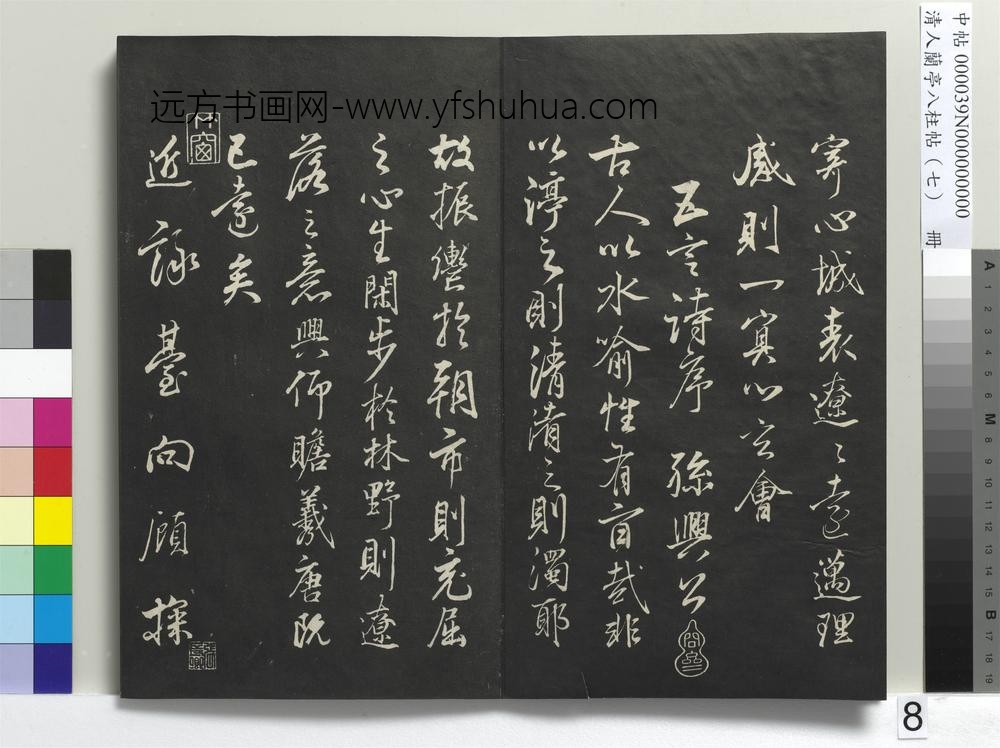 远方书画网-www.yfshuhua.com
中帖 000039N000000000
清人蘭亭八柱帖(七) 冊
寄心城表遼〻遠邁理
感則一冥心玄會
五言詩序 孫興公
古人以水喻性有旨哉非
以渟之則清淆之則濁耶
故振轡於朝市則充屈
之心生閑步於林野則遼
落之意興仰瞻羲唐既
已遠矣
近詠臺向顧探
A 1 2 3 4 5 6 M 8 9 10 11 12 13 14 15 B 17 18 19
8